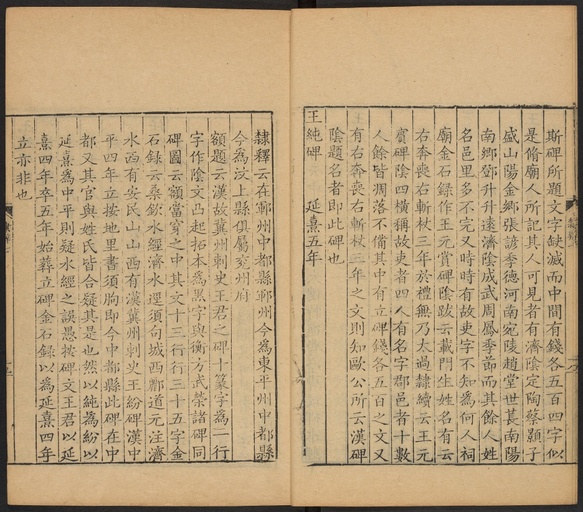 斯碑所題文字缺滅而中間有錢各五百四字似
是脩廟人所記其人可見者有濟陰定陶蔡顥子
盛山陽金鄉張諺季德河南宛陵趙堂世萇南陽
南鄉鄧升升遠濟陰成武周鳳季節而其餘人姓
名邑里多不完又時時有故吏字不知為何人祠
廟金石錄作王元賞碑陰跋云載門生姓名有云
右奔喪右斬杖三年於禮無乃太過隸續云王元
賓碑陰四橫稱故吏者四人有名字郡邑者十數
人餘皆凋落不備其中有立碑錢各五百之文又
有右奔喪右斬杖三年之文則知歐公所云漢碑
陰題名者即此碑也
王純碑 延熹五年
隸釋云在鄆州中都縣鄆州今為東平州中都縣
今為汶上縣俱屬兗州府
額題云漢故冀州刺史王君之碑十篆字為一行
字作陰文凸起拓本為黑字與衡方武榮諸碑同
碑圖云額當穿之中其文十三行行三十五字金
石錄云桑欽水經濟水逕須句城西酈道元注濟
水西有安民山山西有漢冀州刺史王紛碑漢中
平四年立按地里書須朐即今中都縣此碑在中
都又其官與姓氏皆合疑其是也然以純為紛以
延熹為中平則疑水經之誤愚按碑文王君以延
熹四年卒五年始葬立碑金石錄以為延熹四年
立亦非也